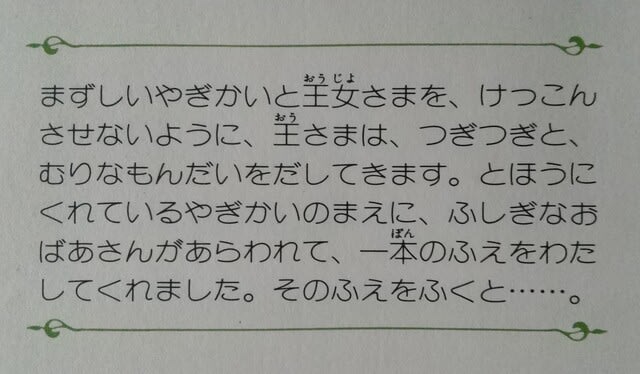 まずしいやぎかいと王女さまを、けっこん
させないように、王さまは、つぎつぎと、
むりなもんだいをだしてきます。とほうに
くれているやぎかいのまえに、ふしぎなお
ばあさんがあらわれて、一本のふえをわた
してくれました。そのふえをふくと……。